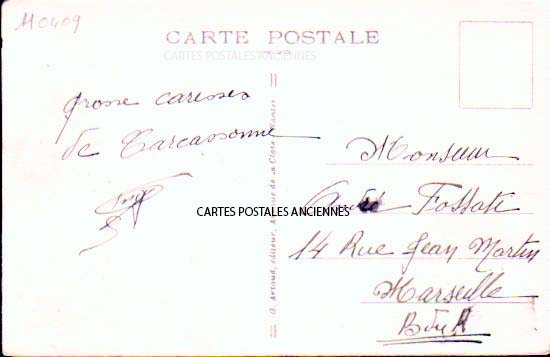 110409
CARTE POSTALE
CARTES POSTALES ANCIENNES
grosse caresses
de Carcassonne
Monsieur
André Fossati
CARTES POSTALES ANCIENNES
14 Rue Jean Martin
Marseille
B du R
G. Artaud, éditeur, de la Close Nantes